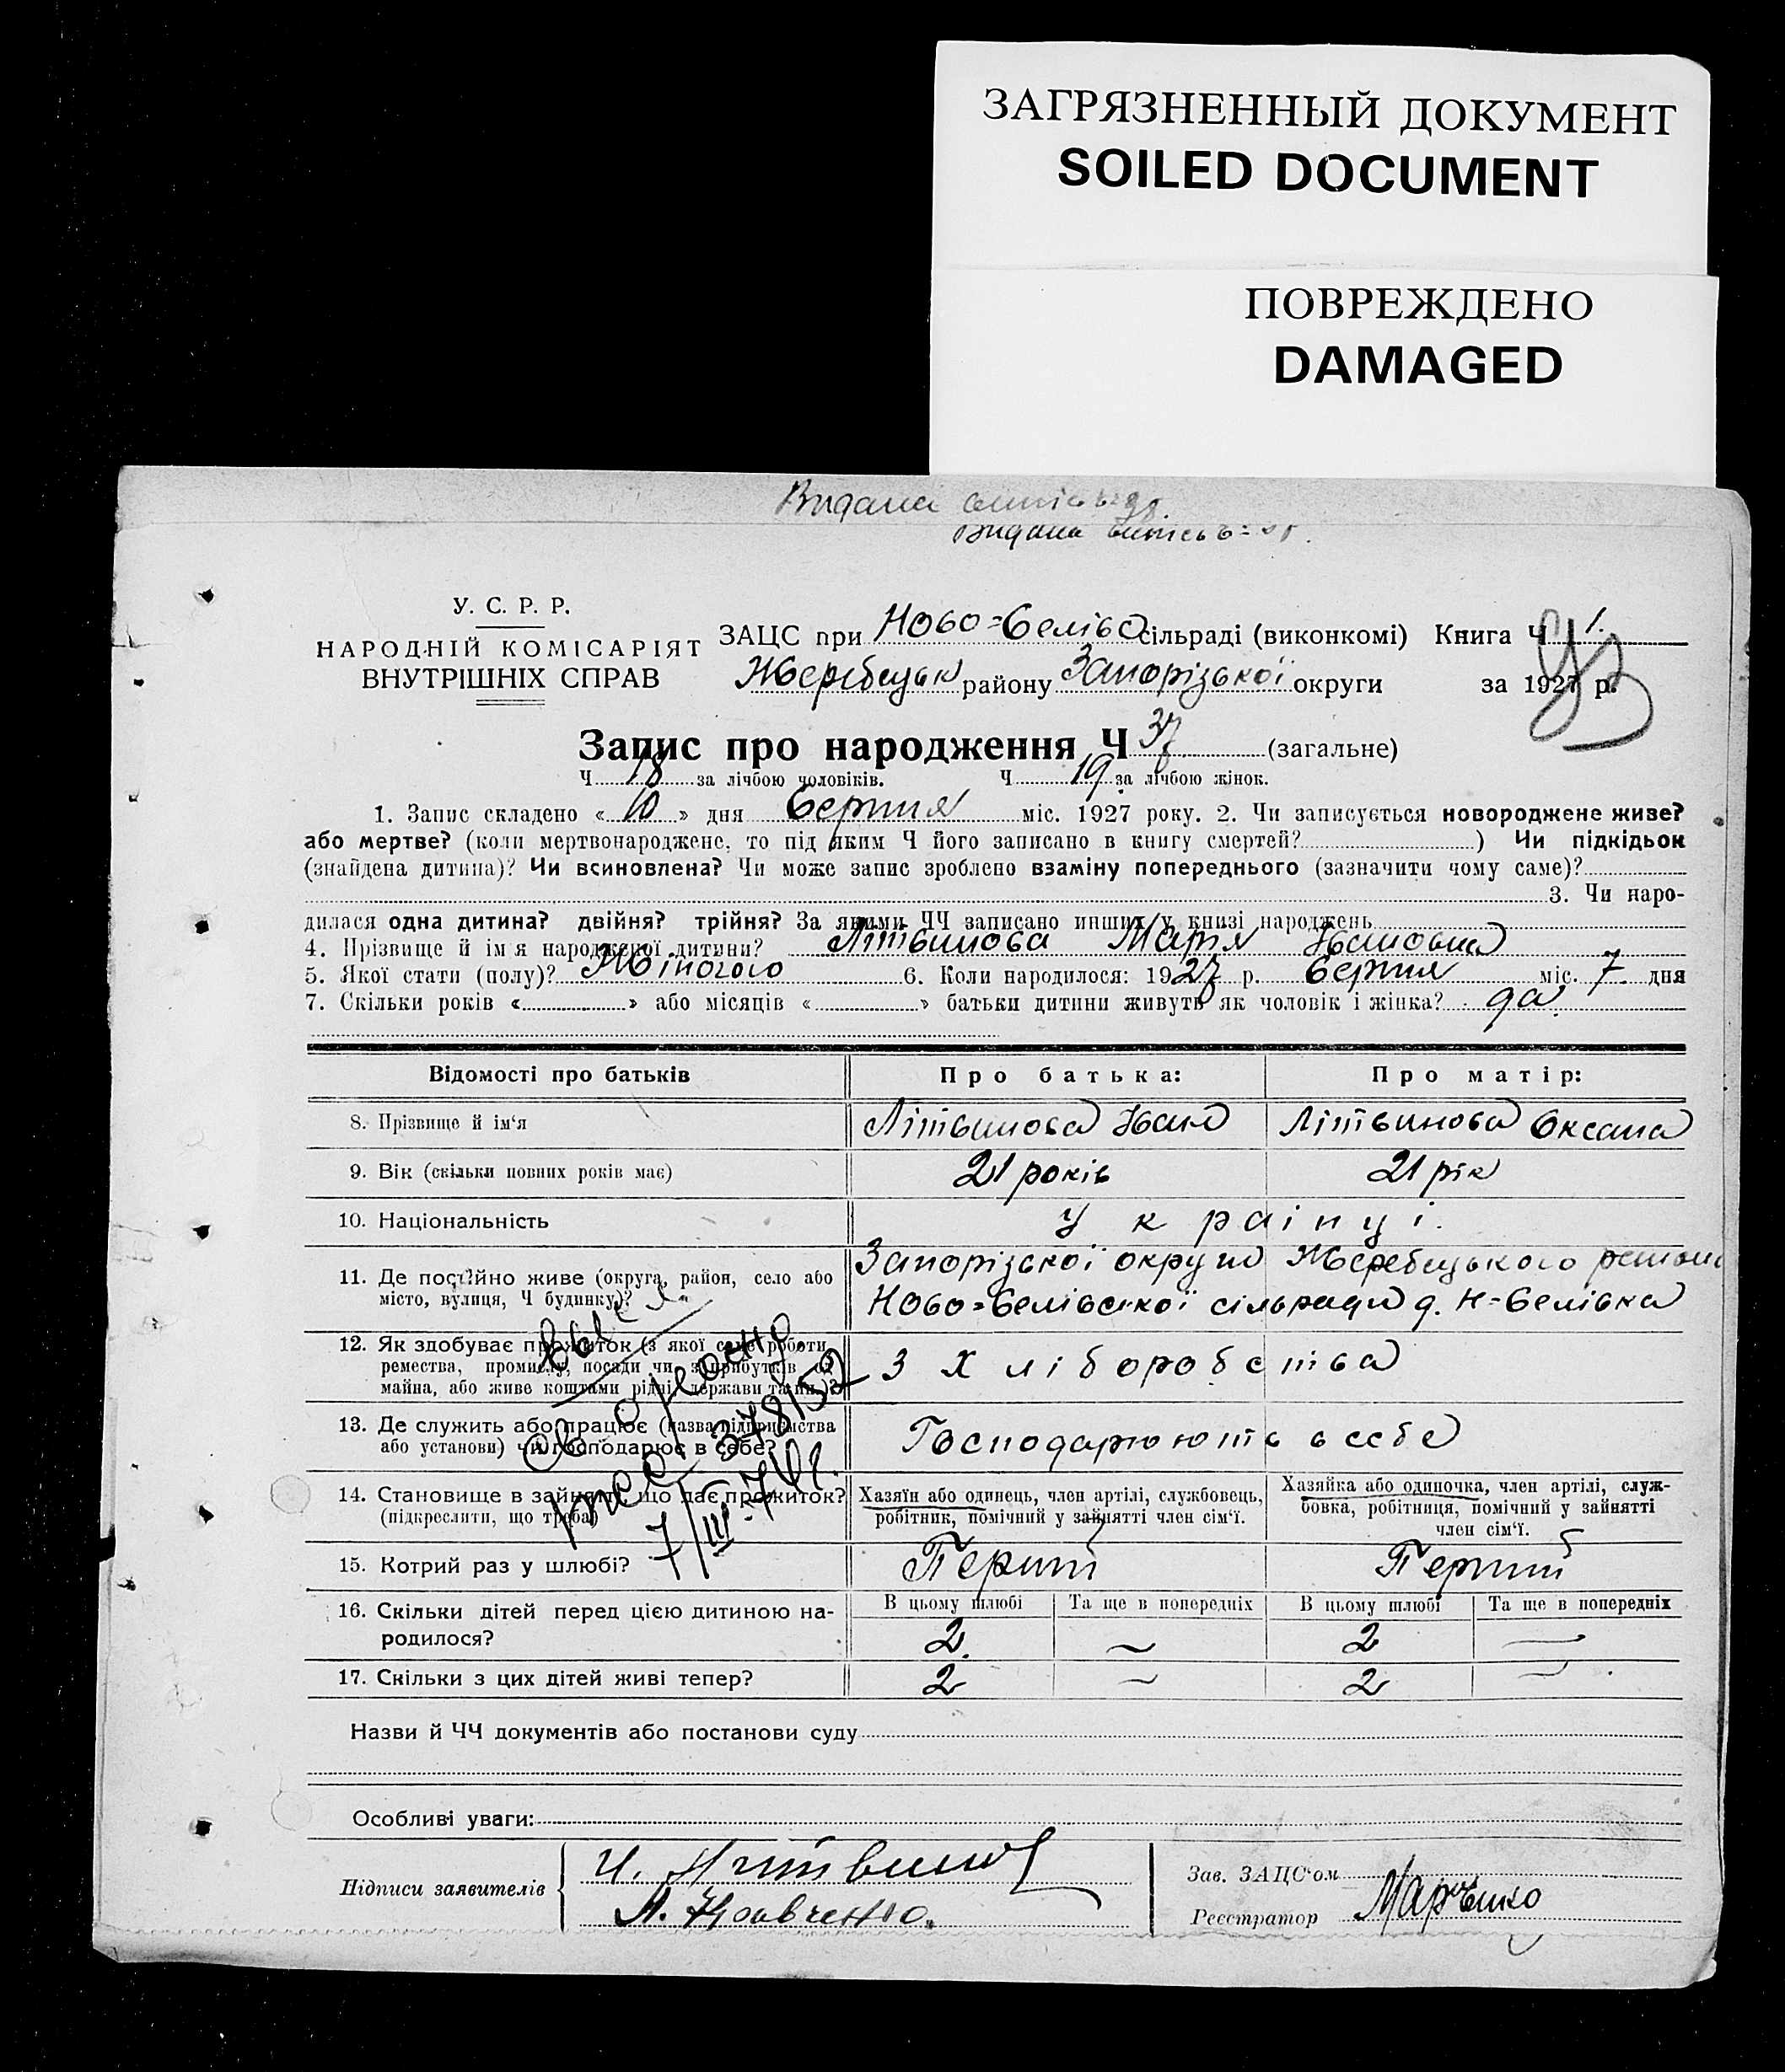 ЗАГРЯЗНЕННЫЙ ДОКУМЕНТ
SOILED DOCUMENT
ПОВРЕЖДЕНО
DAMAGED
Видана
Видана
У. С. Р. Р.
НАРОДНІЙ КОМІСАРІЯТ
ВНУТРІШНІХ СПРАВ
ЗАЦС при Ново-Веліво сільраді (виконкомі) Книга Ч 1.
Жеребецьк району Запорізької округи за 1927 р.
Запис про народження Ч 37 (загальне)
Ч 18 за лічбою чоловіків. Ч 19 за лічбою жінок.
1. Запис складено « 10 » дня Серпня міс. 1927 року. 2. Чи записується новороджене живе?
або мертве? (коли мертвонароджене, то під яким Ч його записано в книгу смертей? ) Чи підкідьок
(знайдена дитина)? Чи всиновлена? Чи може запис зроблено взаміну попереднього (зазначити чому саме)?
3. Чи наро-
дилася одна дитина? двійня? трійня? За якими ЧЧ записано инших у книзі народжень
4. Прізвище й ім'я народженої дитини? Літвинова Марія Івановна
5. Якої стати (полу)? Жіночого 6. Коли народилося: 1927 р. Серпня міс. 7. дня
7. Скільки років « » або місяців « » батьки дитини живуть як чоловік і жінка? да.
Відомості про батьків Про батька: Про матір:
8. Прізвище й ім'я Літвинова Іван Літвинова Оксана
9. Вік (скільки повних років має) 21 років 21 рік
10. Національність Українці.
11. Де постійно живе (округа, район, село або
місто, вулиця, Ч будинку)?
Запорізскої округи Жеребецького
Ново-Велівської сільради д. Н-Велівка
12. Як здобуває прожиток (з якої саме роботи,
ремества, промислу, посади чи з прибутків од
майна, або живе коштами рідні, держави та ин.)?
З Хліборобства
13. Де служить або працює (назва підприємства
або установи) чи господарює в себе?
Господарюють в себе
378152
7/III-76г.
14. Становище в зайнятті, що дає прожиток?
(підкреслити, що треба)
Хазяїн або одинець, член артілі, службовець,
робітник, помічний у зайнятті член сім'ї.
Хазяйка або одиночка, член артілі, служ-
бовка, робітниця, помічний у зайнятті
член сім'ї.
15. Котрий раз у шлюбі? Перший Перший
В цьому шлюбі Та ще в попередніх В цьому шлюбі Та ще в попередніх
16. Скільки дітей перед цією дитиною на-
родилося?
2. – 2 –
17. Скільки з цих дітей живі тепер? 2 – 2 –
Назви й ЧЧ документів або постанови суду
Особливі уваги:
Підписи заявителів
И. Литвинов
Кравченко.
Зав. ЗАЦС'ом
Реєстратор Марченко